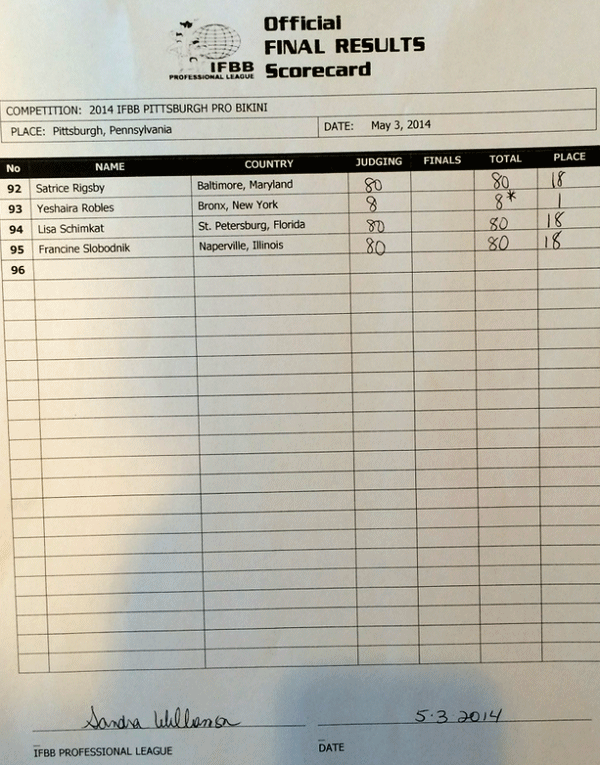 Official
FINAL RESULTS
Scorecard
IFBB
PROFESSIONAL LEAGUE
COMPETITION: 2014 IFBB PITTSBURGH PRO BIKINI
PLACE: Pittsburgh, Pennsylvania DATE: May 3, 2014
No NAME COUNTRY JUDGING FINALS TOTAL PLACE
92 Satrice Rigsby Baltimore, Maryland 80 80 18
93 Yeshaira Robles Bronx, New York 8 8* 1
94 Lisa Schimkat St. Petersburg, Florida 80 80 18
95 Francine Slobodnik Naperville, Illinois 80 80 18
96
Sandra Williamson 5-3-2014
IFBB PROFESSIONAL LEAGUE DATE